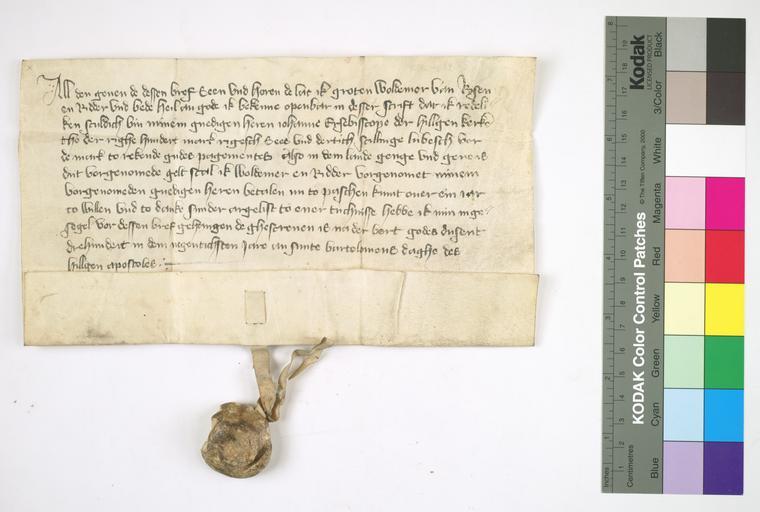 All den gonen de dessen bref seen und horen de lat ik groten Woldemer van Rosen
en Ridder und bede heil an gode ik bekenne openbar in desser scrift dat ik redeli
ken sculdich bin minem gnedigen heren iohanne Ersebisscope der hilligen kerke
tho der righe hundert mark rigesch und dertich scillinge lubesch vor
de mark to rekende gudes pagementes Also in dem lande genge und geve is
dut vorgenomede gelt scal ik Woldemer en Ridder vorgenomet minem
vorgenomeden gnedigen heren betalen nu to paschen kumt over ein iar
to willen und to danke sunder argelist to ener tuchnisse hebbe ik min inge
segel vor dessen bref gehangen de ghescreven is na der bort godes dusent
drehundert in dem negentichsten jare an sunte bartolomeus daghe des
hilligen apostoles
Kodak
LICENSED PRODUCT
KODAK Color Control Patches
© The Tiffen Company, 2000
Black
3/Color
White
Magenta
Red
Yellow
Green
Cyan
Blue
Inches
Centimetres